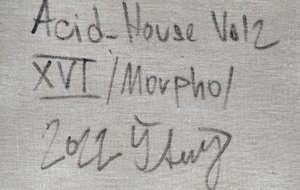 Acid-House Vol2
XVI/Morphol
2022